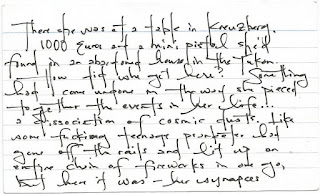 There she was at a table in Kreuzberg.
1000 Euros and a mini pistol she'd
found in an abandoned house in the Yukon.
How did she get here? Something
had come undone in the way she pieced
together the events in her life...
a dissociation of cosmic quota. Like
some fucking teenage prankster had
gone off the rails and lit up an
entire chain of fireworks in one go,
but here it was - her synapses